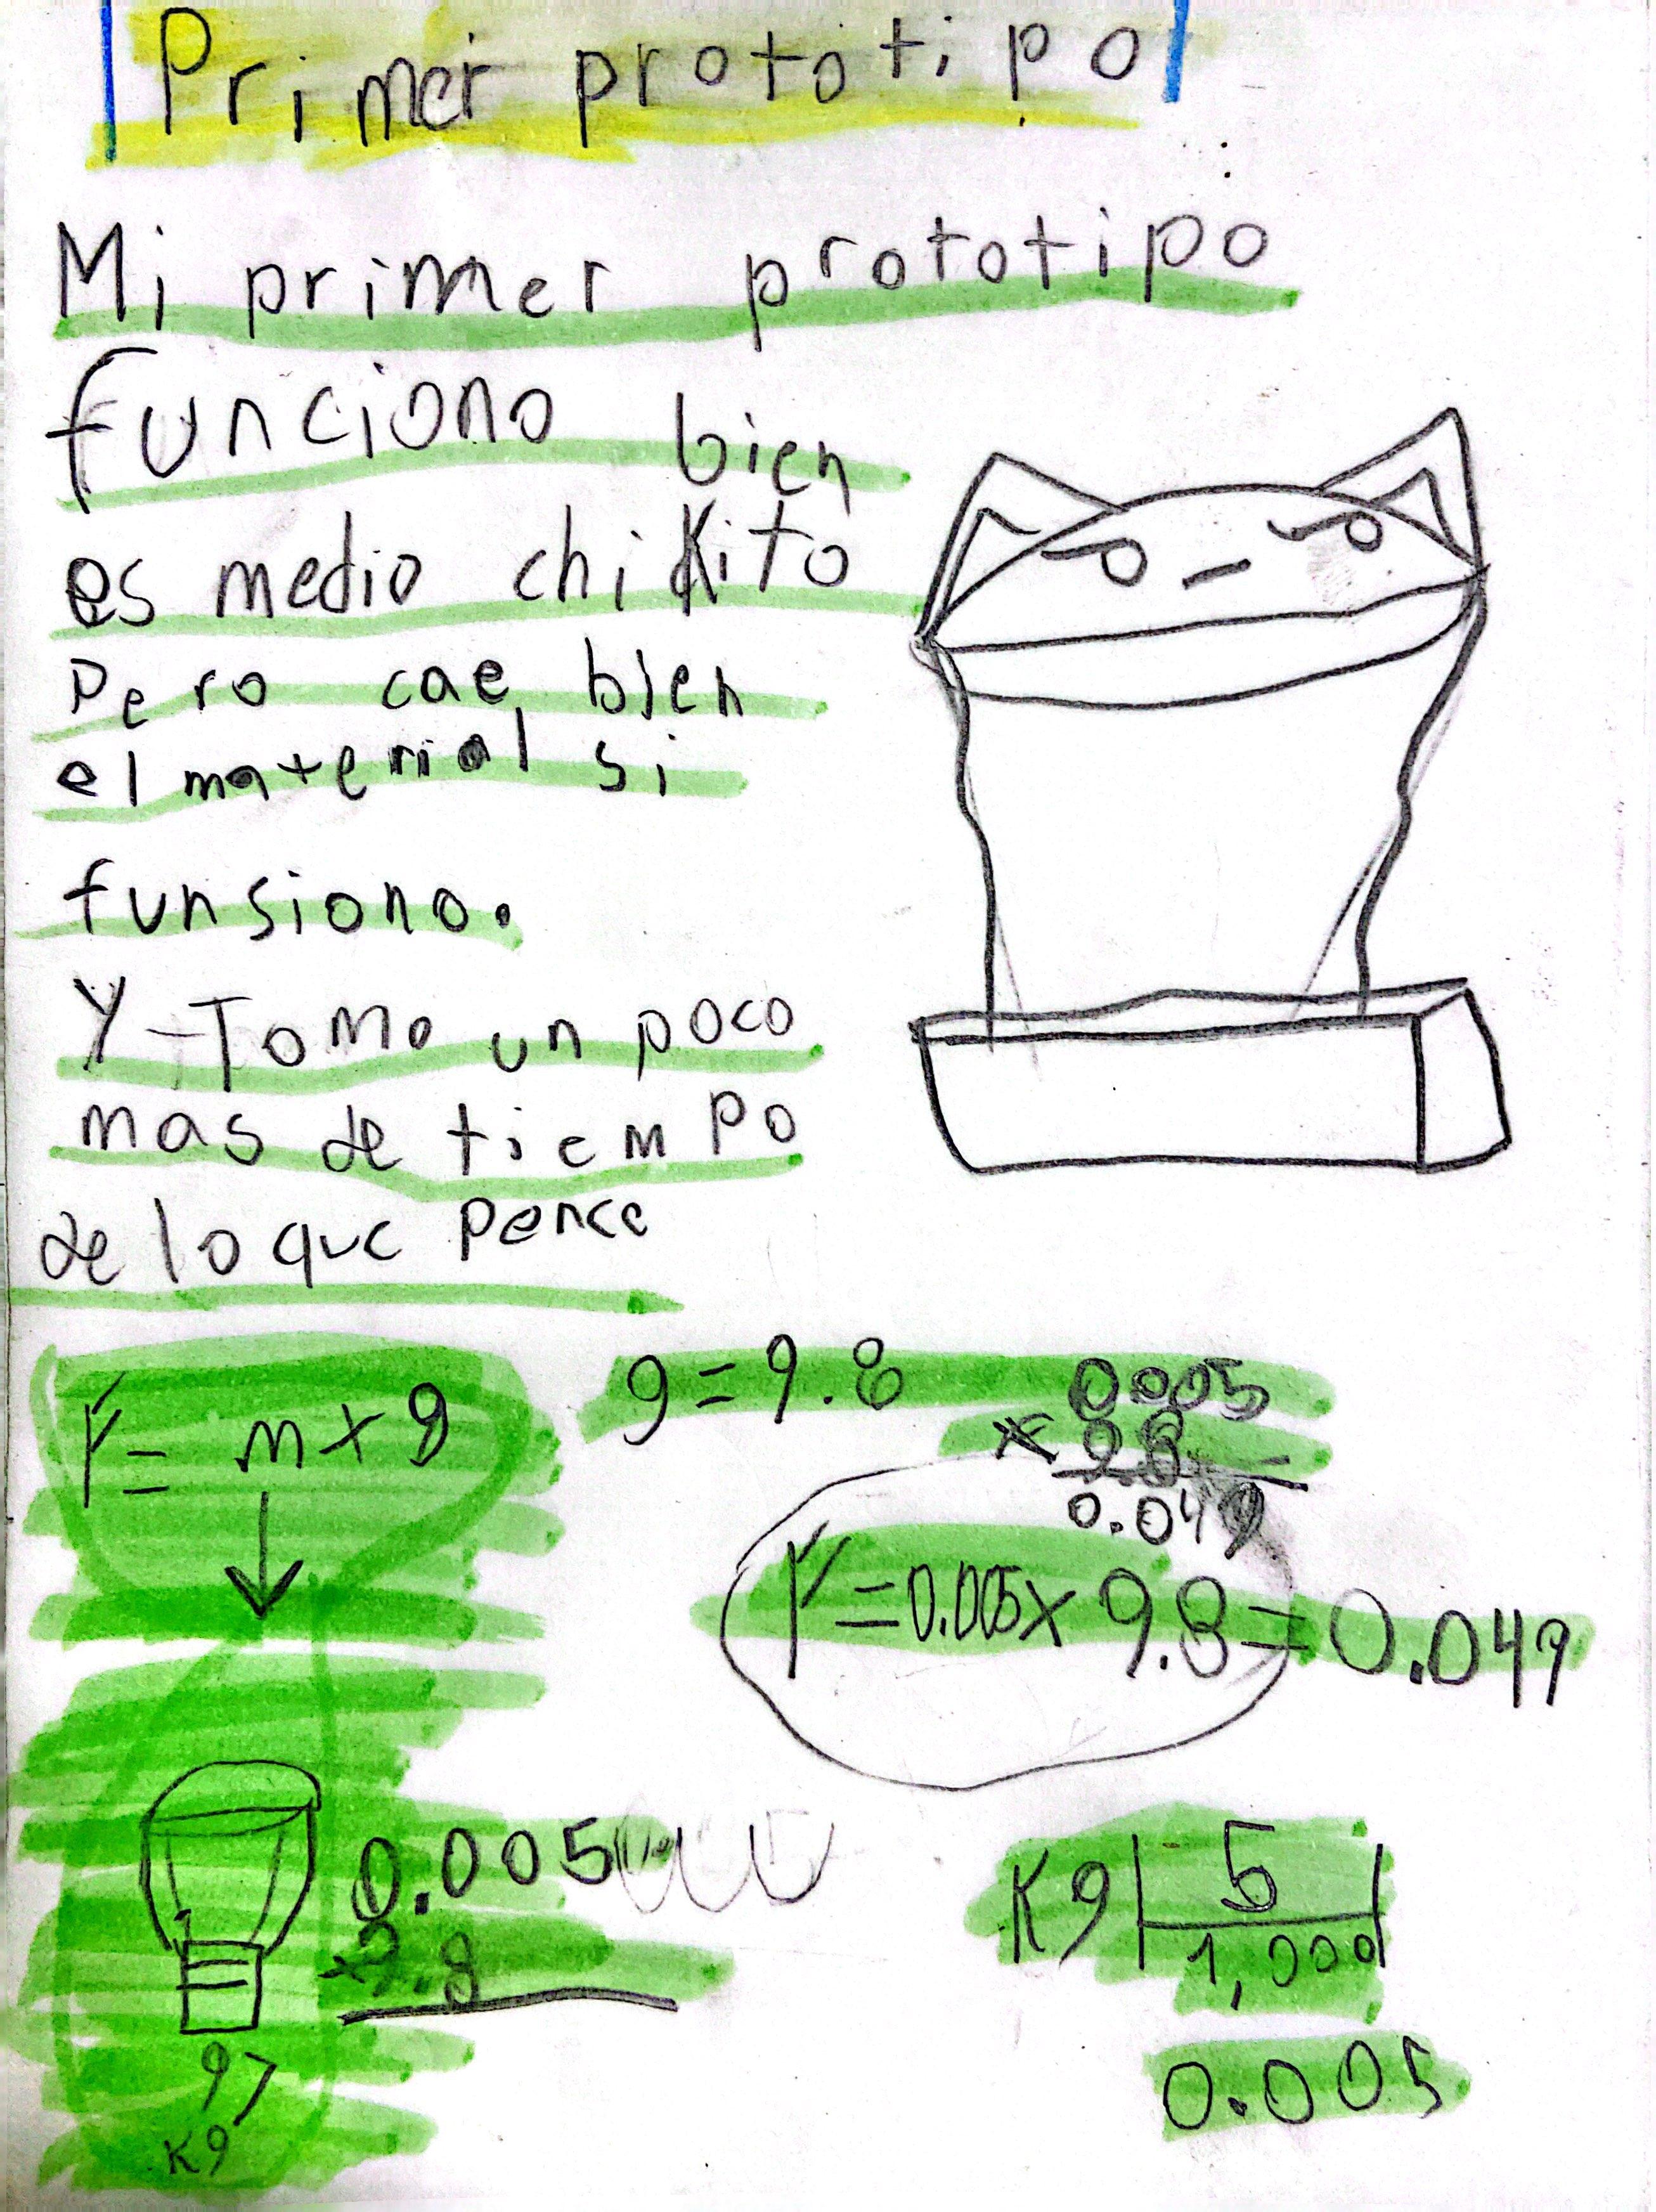 Primer prototipo
Mi primer prototipo
funciono bien
es medio chikito
pero cae bien
el material si
funsiono.
Y Tomo un poco
mas de tiempo
de lo que pence
F= m x g
g=9.8
0.005
x 9.8
0.049
F=0.005x 9.8=0.049
0.005
x9.8
Kg 5
1,000
0.005
g>
Kg